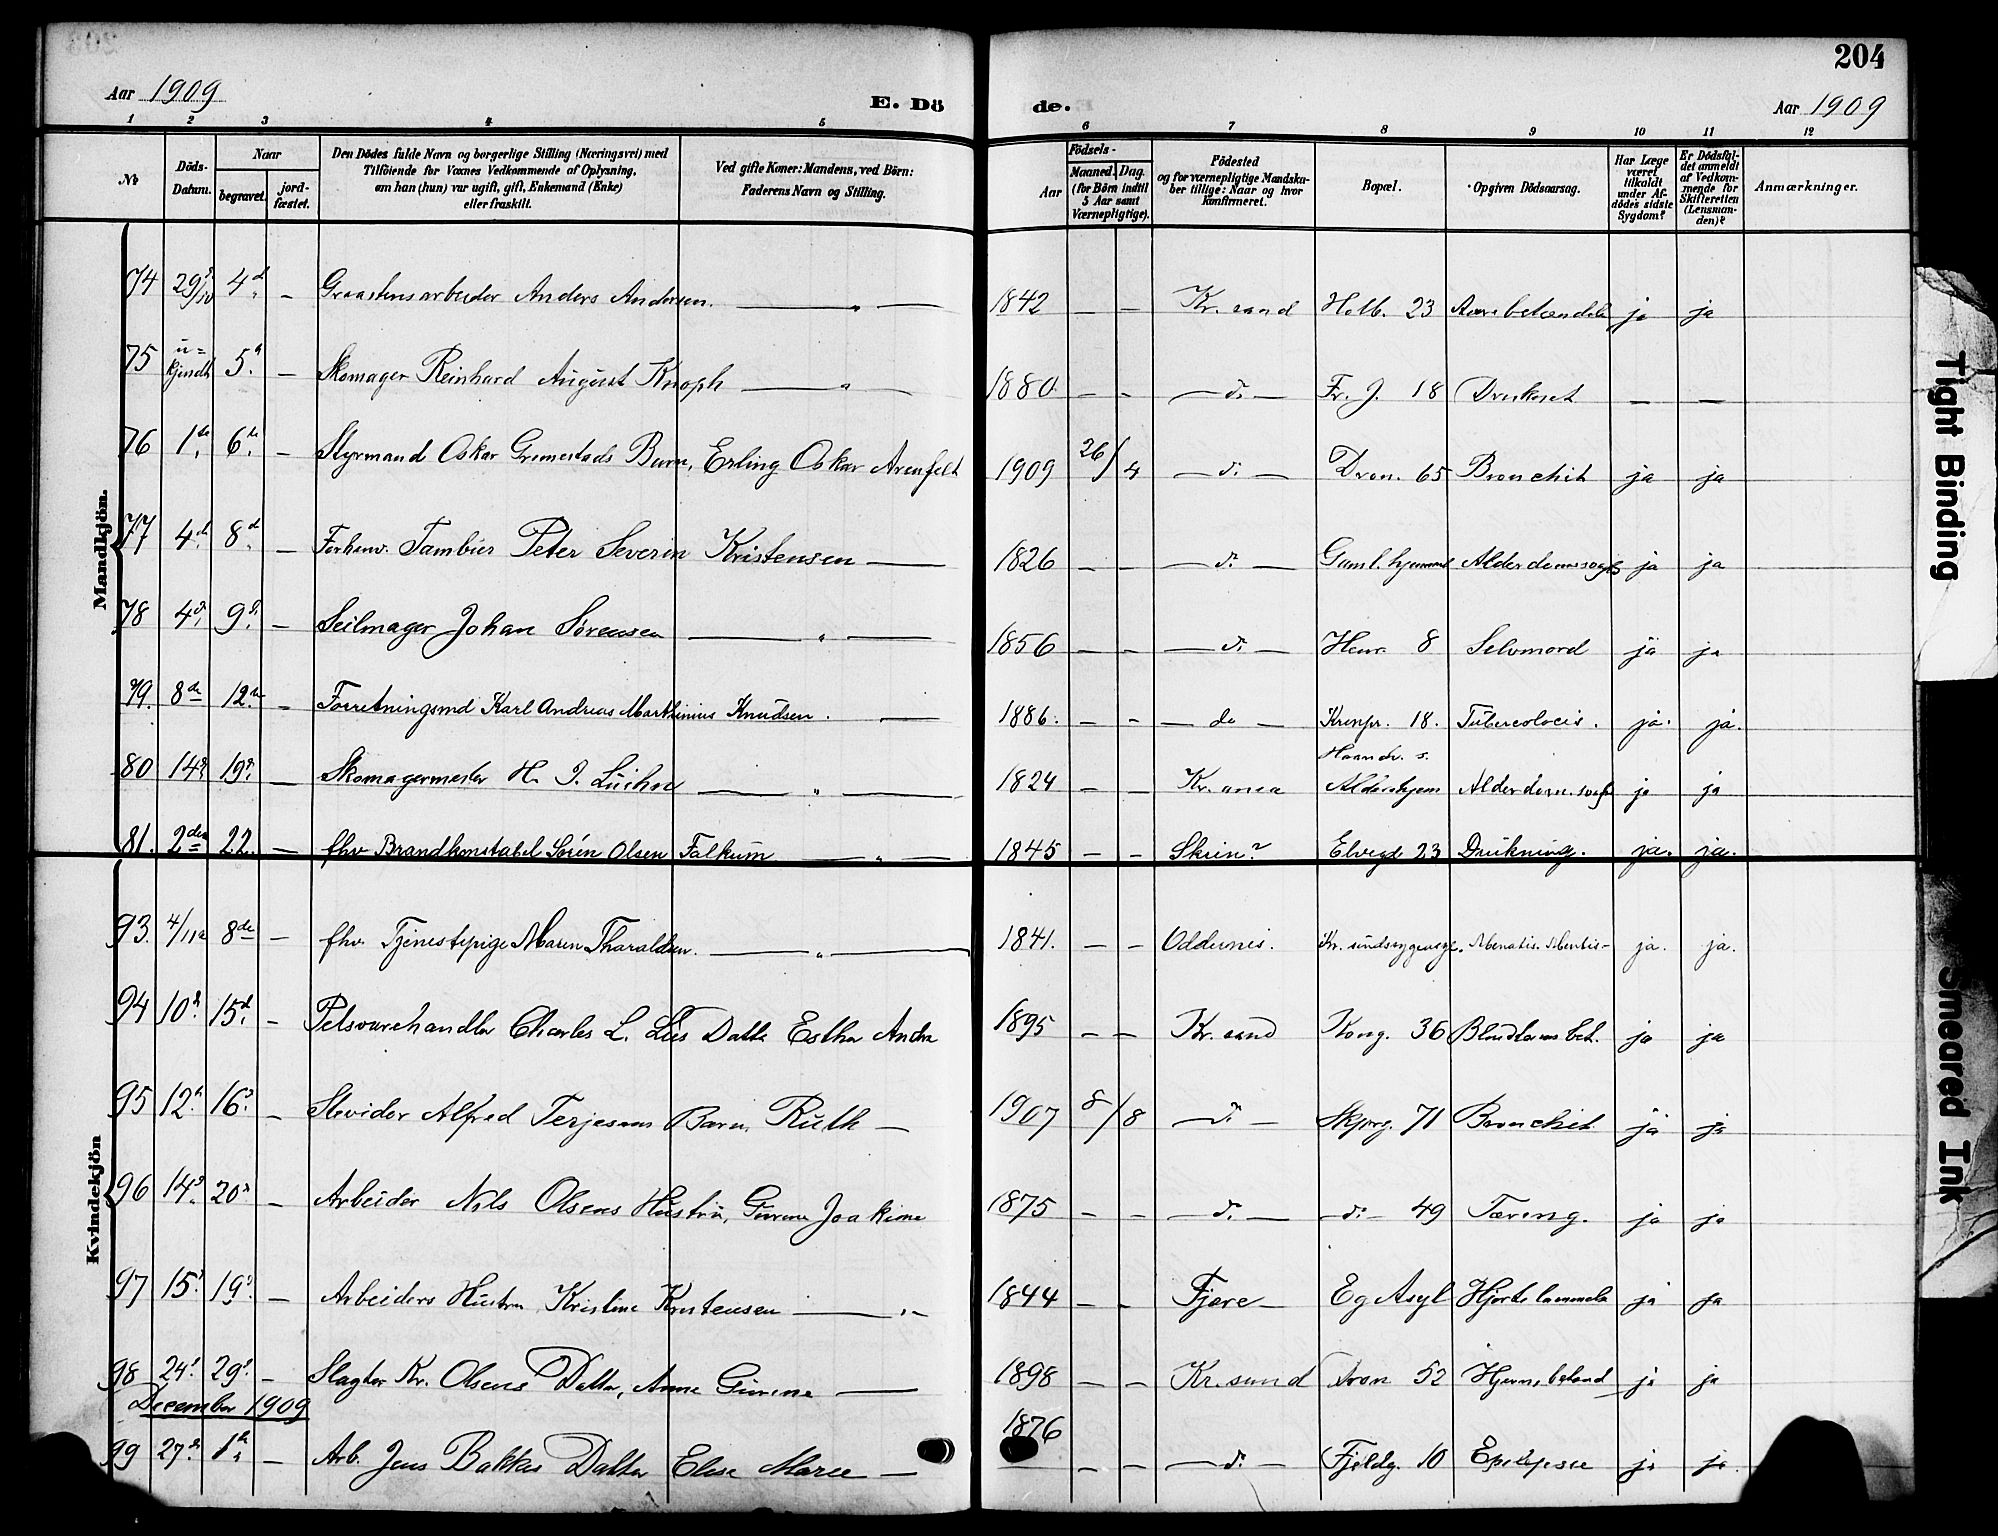 204
Aar 1909 E. Dö de. Aar 1909
1 2 3 4 5 6 7 8 9 10 11 12
№ Döds-Datum. Naar begravet. jordfæstet. Den Dödes fulde Navn og borgerlige Stilling (Næringsvei) med Tilföiende for Voxnes Vedkommende af Oplysning, om han (hun) var ugift, gift, Enkemand (Enke) eller fraskilt. Ved gifte Koner: Mandens, ved Börn: Faderens Navn og Stilling. Aar Födsels- Maaned. Dag. (for Börn indtil 5 Aar samt Værnepligtige). Födested og for værnepligtige Mandskaber tillige: Naar og hvor konfirmeret. Bopæl. Opgiven Dödsaarsag. Har Læge været tilkaldt under Afdödes sidste Sygdom? Er Dödsfaldet anmeldt af Vedkommende for Skifteretten (Lensmanden)? Anmærkninger.
Mandkjön.
74 29/10 4d. – Graastensarbeider Anders Andersen. — „ — 1842 – – Kr.sand Holb. 23 ja ja
75 ukjendt 5. – Skomager Reinhard August Knoph — „ — 1880 – – — d: — Fr. J. 18 Druknet – –
76 1de 6de. – Styrmand Oskar Grimestads Barn, Erling Oskar Arenfelt 1909 26/4 — d: — Dron. 65 Bronchit ja ja
77 4d. 8d. – Forhenv. Tambur Peter Severin Kristensen — 1826 – – — d: — Gaml.hjemmet Alderdomssvagh ja ja
78 4d. 9d. – Seilmager Johan Sørensen — „ — 1856 – – — d: — Henr. 8 Selvmord ja ja
79. 8de 12te – Forretningsmd Karl Andreas Marthinius Knudsen. — 1886. – – — do — Kronpr. 18. Tuberculocis. ja. ja.
80 14d. 19d. – Skomagermester H. J. — „ — 1824 – – Kr.ania Haandv.s. Aldershjem Alderdomssvagh ja ja
81. 2den 22. – fhv Brandkonstabel Sørin Olsen Falkum — „ — 1845 – – Skien? Elvegd 23 Drukning. ja. ja.
Kvindekjön
93. 4/11 8de – fhv. Tjenestepige Maren Tharaldsen. — „ — 1841. – – Oddernes. Kr.sindssygeasyl. ja. ja.
94 10d. 15d. – Pelsvarehandler Charles L. Datter Esther Andrea 1895 – – Kr.sand Kong. 36 Blindtarmsbet. ja ja
95 12te. 16d. – Stevidor Alfred Terjesens Barn, Ruth — 1907 8/8 — d: — Skjerg. 71 Bronchit ja ja
96 14d. 20d – Arbeider Nils Olsens Hustru, Gurine Joakime 1875 – – — d: — — d: — 49 Tæring. ja ja
97 15d. 19d. – Arbeiders Hustru Kristine Kristensen — „ – 1844 – – Fjære – Eg Asyl Hjertelammelse ja ja
98 24d. 29d. – Slagter Kr. Olsens Datter, Anne Gurine — 1898 – – Kr.sand Dron 52 ja ja
December 1909
99 27d. 1te. – Arb. Jens Bakkes Datter Elise Marie — 1876 – – — d: — Fjeldg. 10 Epilepsie ja ja.
Tight Binding
Smeared Ink